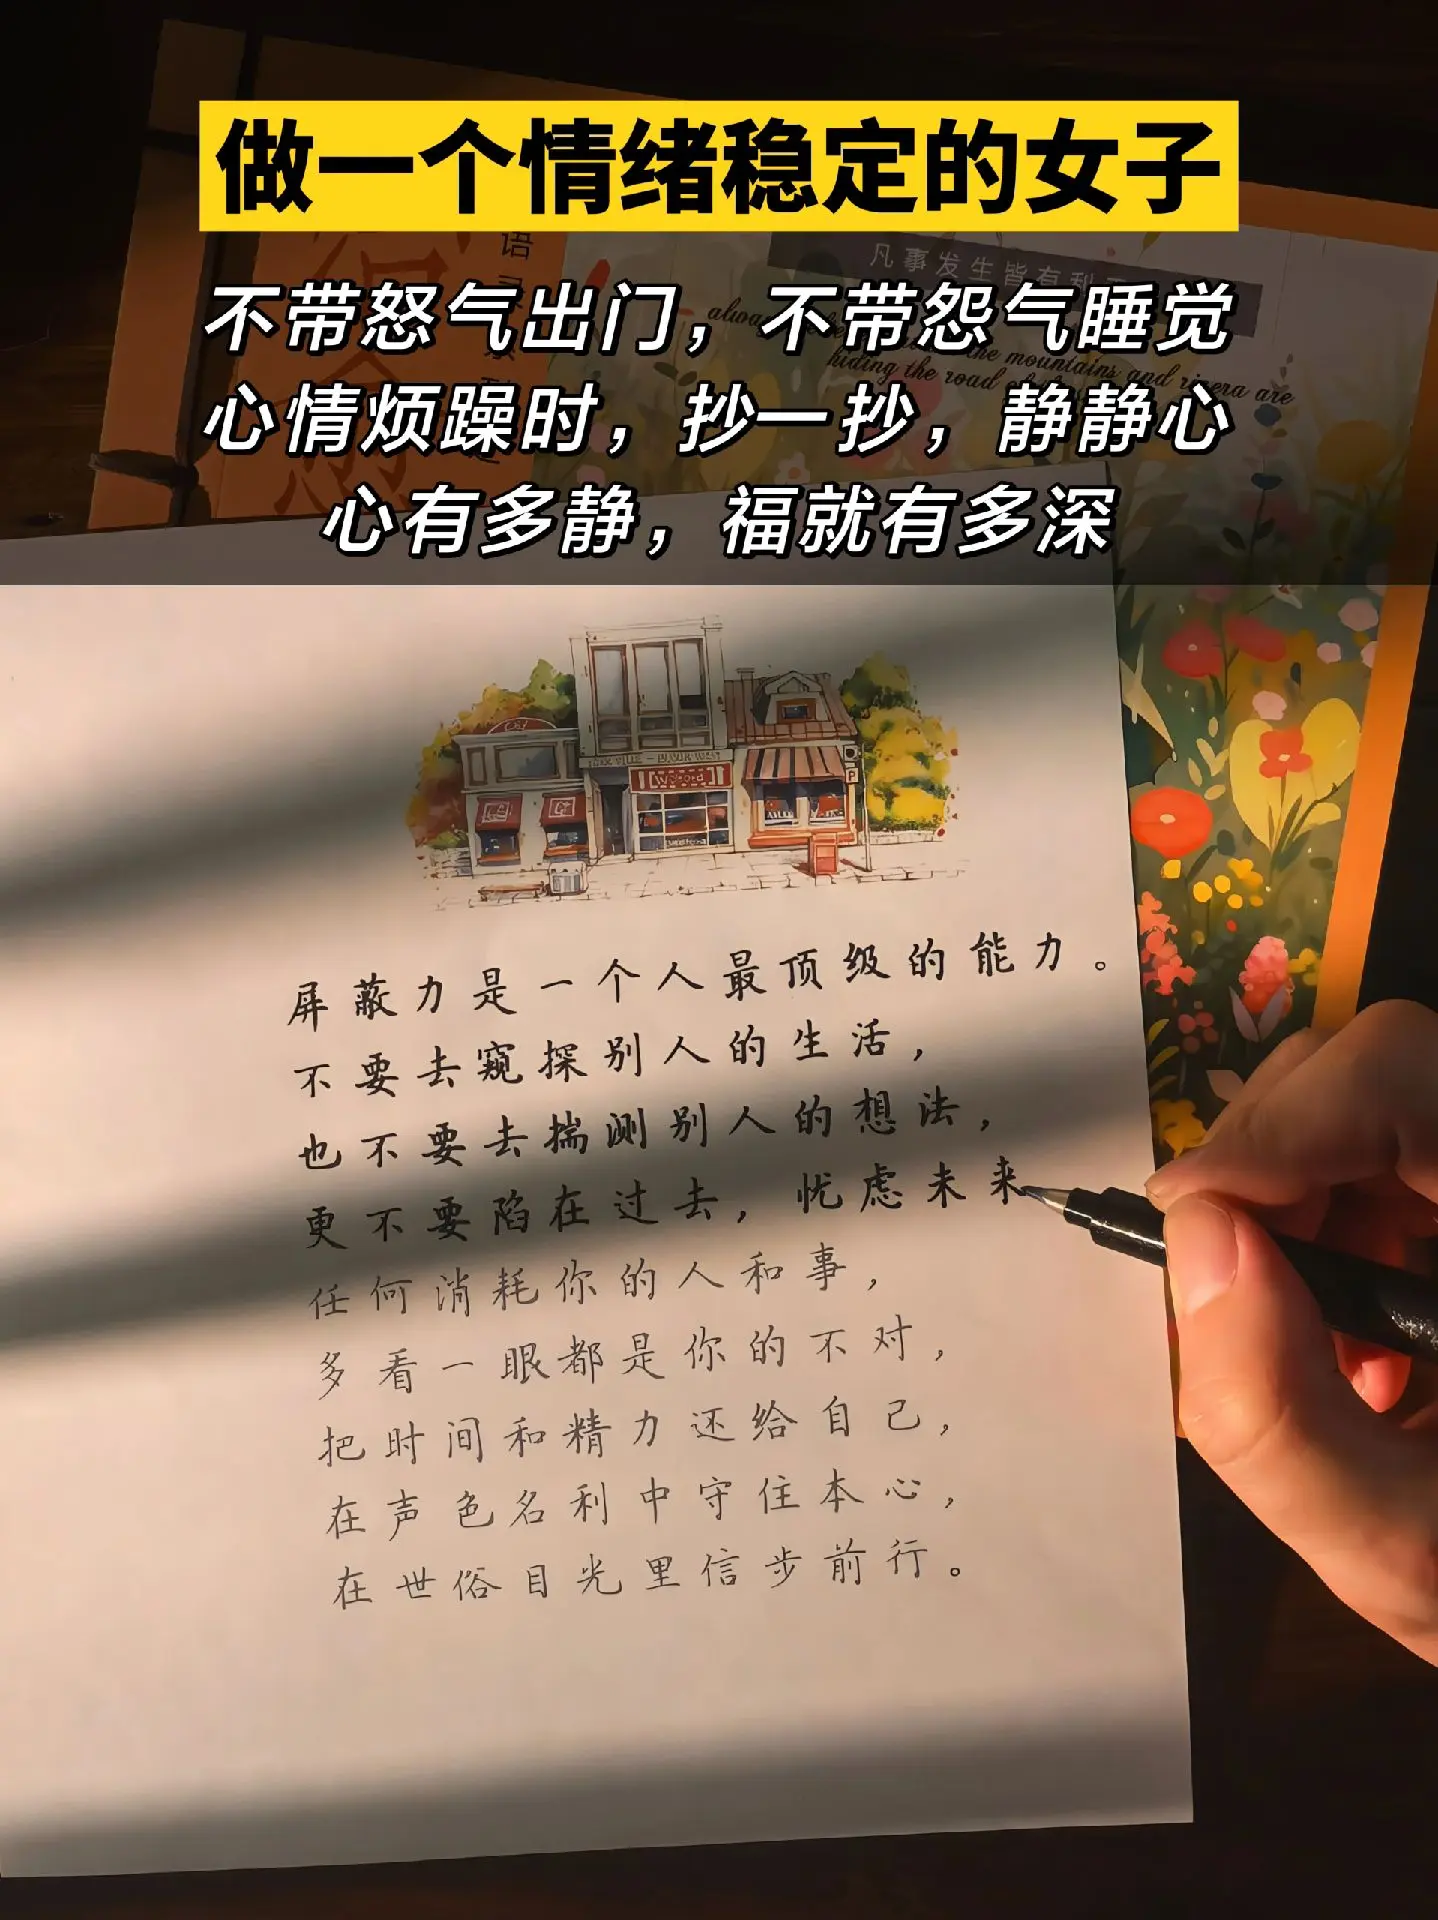 做一个情绪稳定的女子
不带怒气出门，不带怨气睡觉
心情烦躁时，抄一抄，静静心
心有多静，福就有多深
语
凡事发生皆有利
the mountains and rivers are
hiding the road
P
屏蔽力是一个人最顶级的能力。
不要去窥探别人的生活，
也不要去揣测别人的想法，
更不要陷在过去，忧虑未来
任何消耗你的人和事，
多看一眼都是你的不对，
把时间和精力还给自己，
在声色名利中守住本心，
在世俗目光里信步前行。